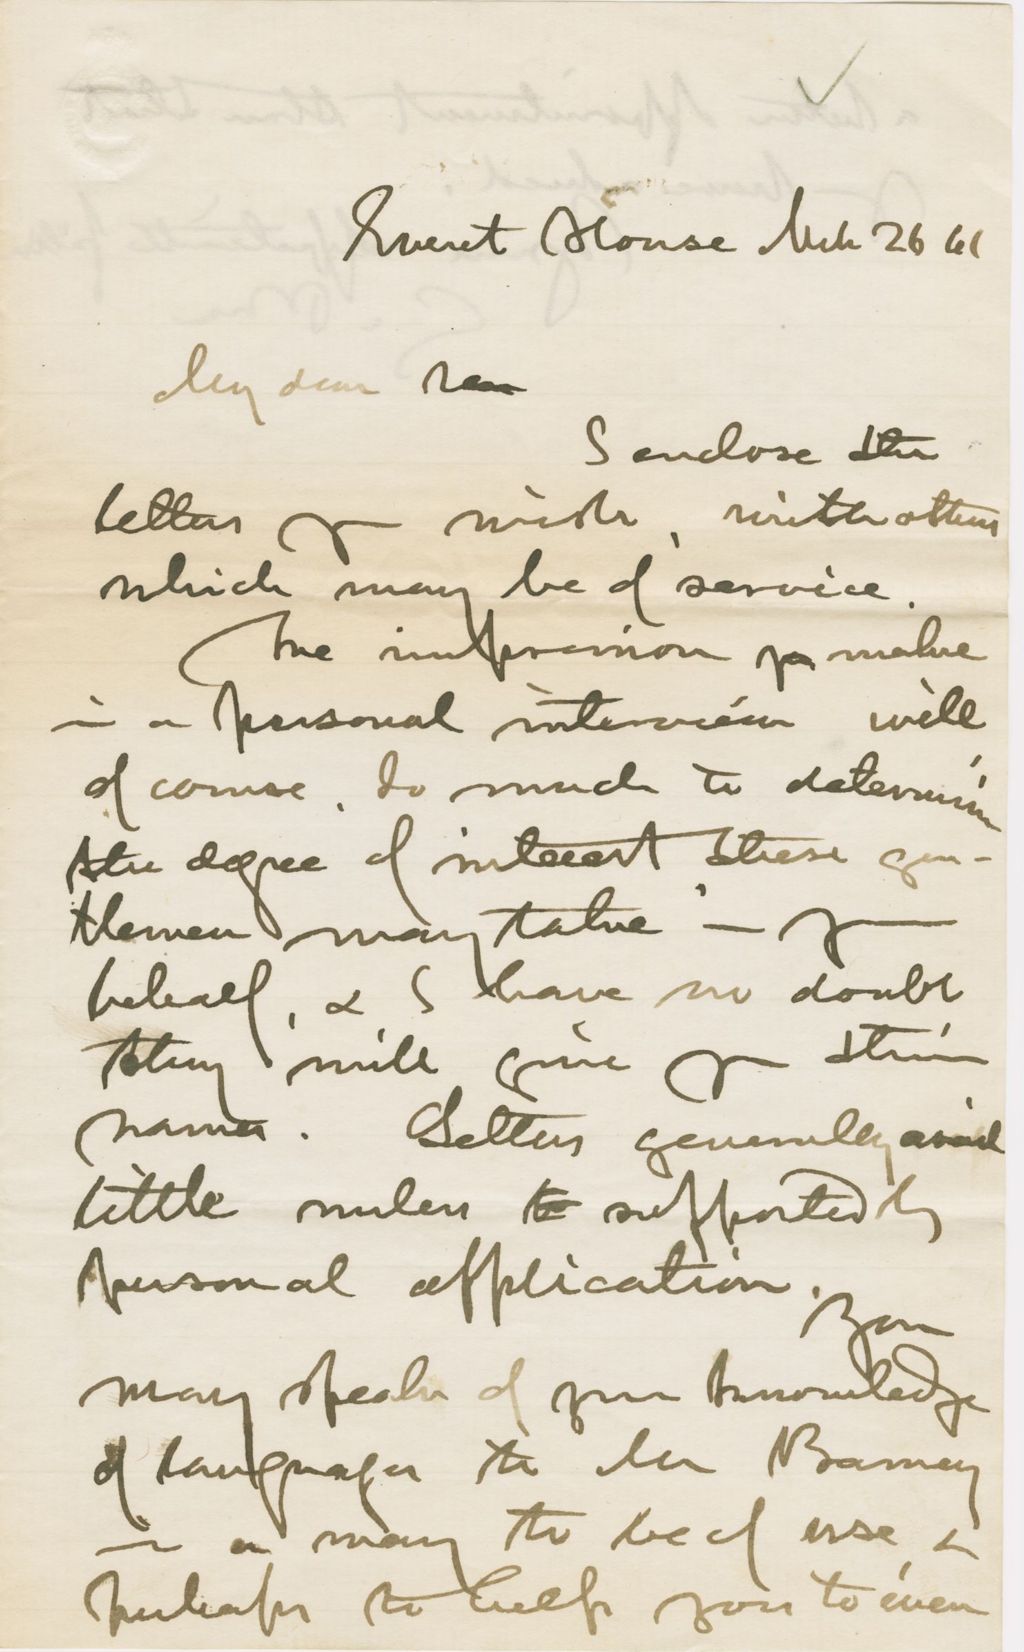 Everet House Mch 26 61
My dear
I enclose the
letters you wish, with others
which may be of service.
The impression you make
in a personal interview will
of course, do much to determine
the degree of interest these gen-
tlemen may take in your
behalf, & I have no doubt
they will give you their
names. Letters generally avail
little unless supported by
personal application. You
may speak of your knowledge
of languages to Mr Barney
in a way to be of use &
perhaps to help you to even